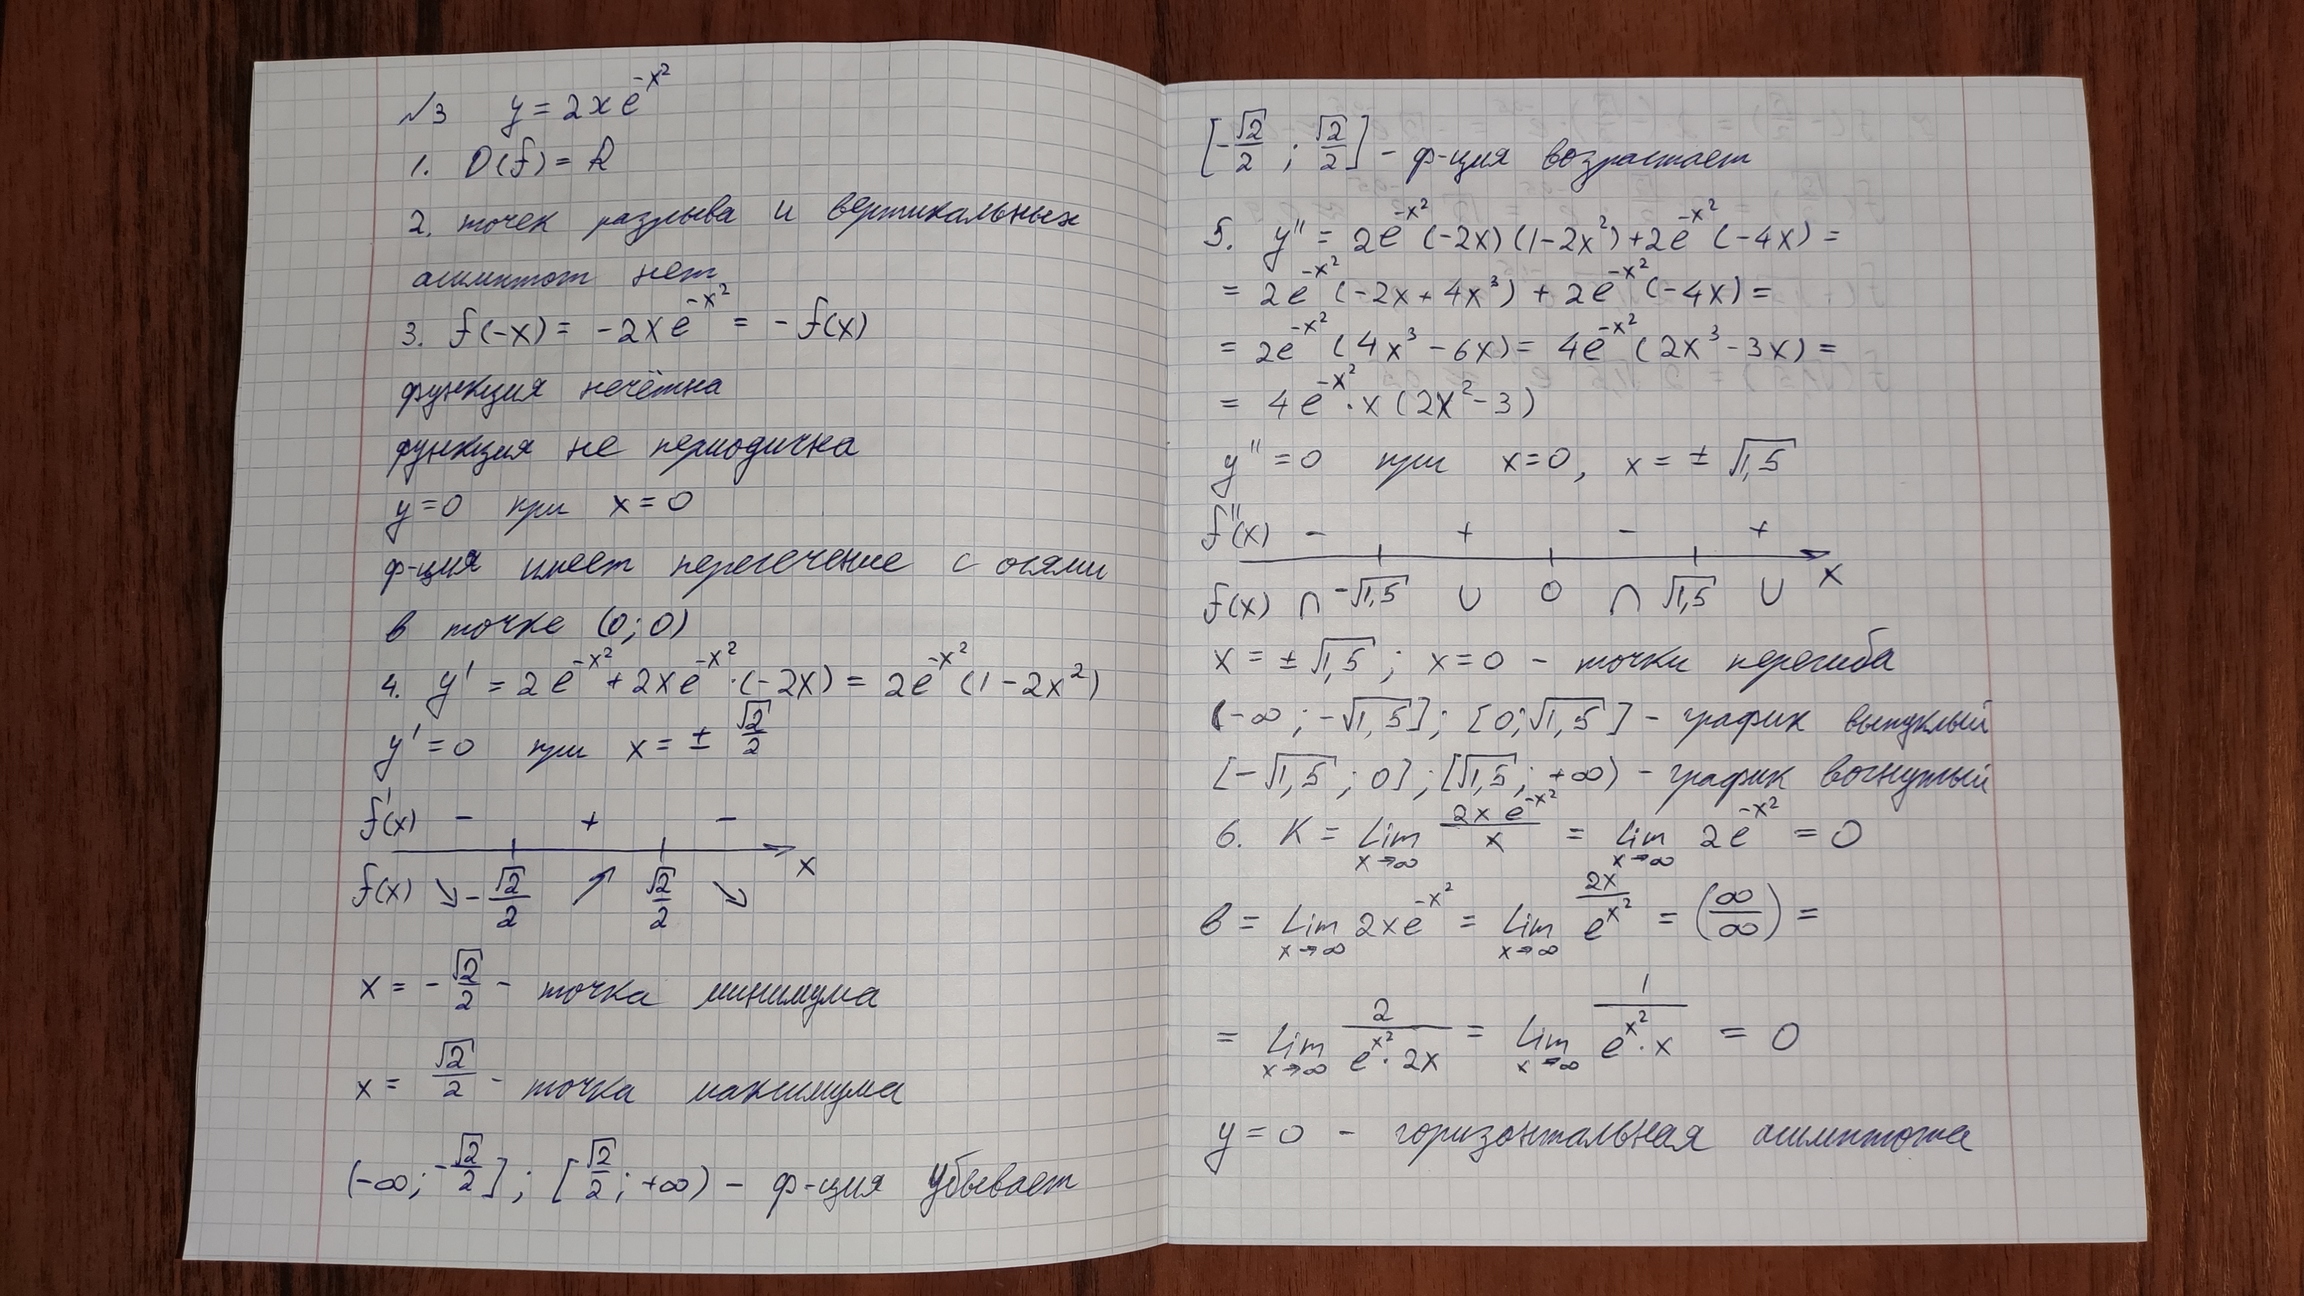 №3 y = 2xe^{-x²}
1. D(f) = R
2. точек разрыва и вертикальных
асимптот нет
3. f(-x) = -2xe^{-x²} = -f(x)
функция нечётна
функция не периодична
y=0 при x=0
ф-ция имеет пересечение с осями
в точке (0;0)
4. y' = 2e^{-x²} + 2xe^{-x²}·(-2x) = 2e^{-x²}(1-2x²)
y'=0 при x = ± √2/2
f'(x) - + -
x
f(x) ↘ -√2/2 ↗ √2/2 ↘
x = -√2/2 - точка минимума
x = √2/2 - точка максимума
(-∞; -√2/2]; [√2/2; +∞) - ф-ция убывает
[-√2/2; √2/2] - ф-ция возрастает
5. y'' = 2e^{-x²}(-2x)(1-2x²)+2e^{-x²}(-4x) =
= 2e^{-x²}(-2x+4x³) + 2e^{-x²}(-4x) =
= 2e^{-x²}(4x³-6x) = 4e^{-x²}(2x³-3x) =
= 4e^{-x²}·x(2x²-3)
y''=0 при x=0, x = ±√1,5
f''(x) - + - +
x
f(x) ∩ -√1,5 ∪ 0 ∩ √1,5 ∪
x = ±√1,5; x=0 - точки перегиба
(-∞; -√1,5]; [0;√1,5] - график выпуклый
[-√1,5; 0]; [√1,5; +∞) - график вогнутый
6. K = Lim x→∞ 2xe^{-x²}/x = Lim x→∞ 2e^{-x²} = 0
в = Lim x→∞ 2xe^{-x²} = Lim x→∞ 2x/e^{x²} = (∞/∞) =
= Lim x→∞ 2/(e^{x²}·2x) = Lim x→∞ 1/(e^{x²}·x) = 0
y=0 - горизонтальная асимптота